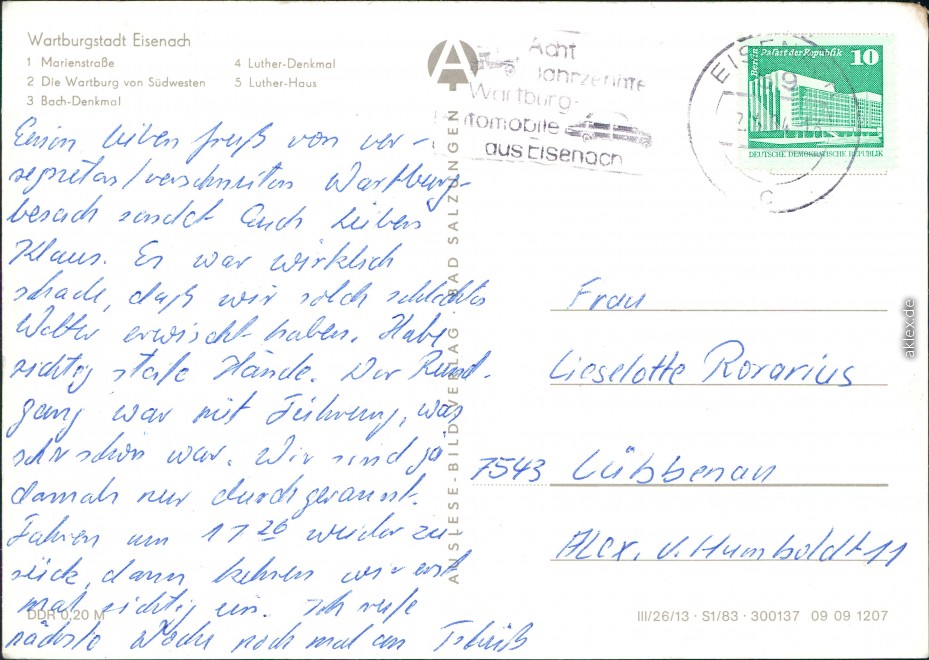 Wartburgstadt Eisenach
1 Marienstraße
2 Die Wartburg von Südwesten
3 Bach-Denkmal
4 Luther-Denkmal
5 Luther-Haus
Einen lieben Gruß von ver-
regneten/verschneiten Wartburg-
besuch sendet Euch lieben
Klaus. Es war wirklich
schade, daß wir solch schlechtes
Wetter erwischt haben. Habe
richtig steife Hände. Der Rund-
gang war mit Führung, was
sehr schön war. Wir sind ja
damals nur durchgerannt.
Fahren um 17 26 wieder zu
rück, dann kehren wir erst
mal richtig ein. Ich rufe
nächste Woche noch mal an Tschüß
DDR 0,20 M
A
AUSLESE-BILD-VERLAG · BAD SALZUNGEN
Acht
Jahrzehnte
Wartburg-
automobile
aus Eisenach
EISENACH
C
Berlin
Palast der Republik
10
DEUTSCHE DEMOKRATISCHE REPUBLIK
Frau
Lieselotte Rorarius
7543 Lübbenau
Alex. v. Humboldt 11
III/26/13 · S1/83 · 300137 09 09 1207
aklex.de